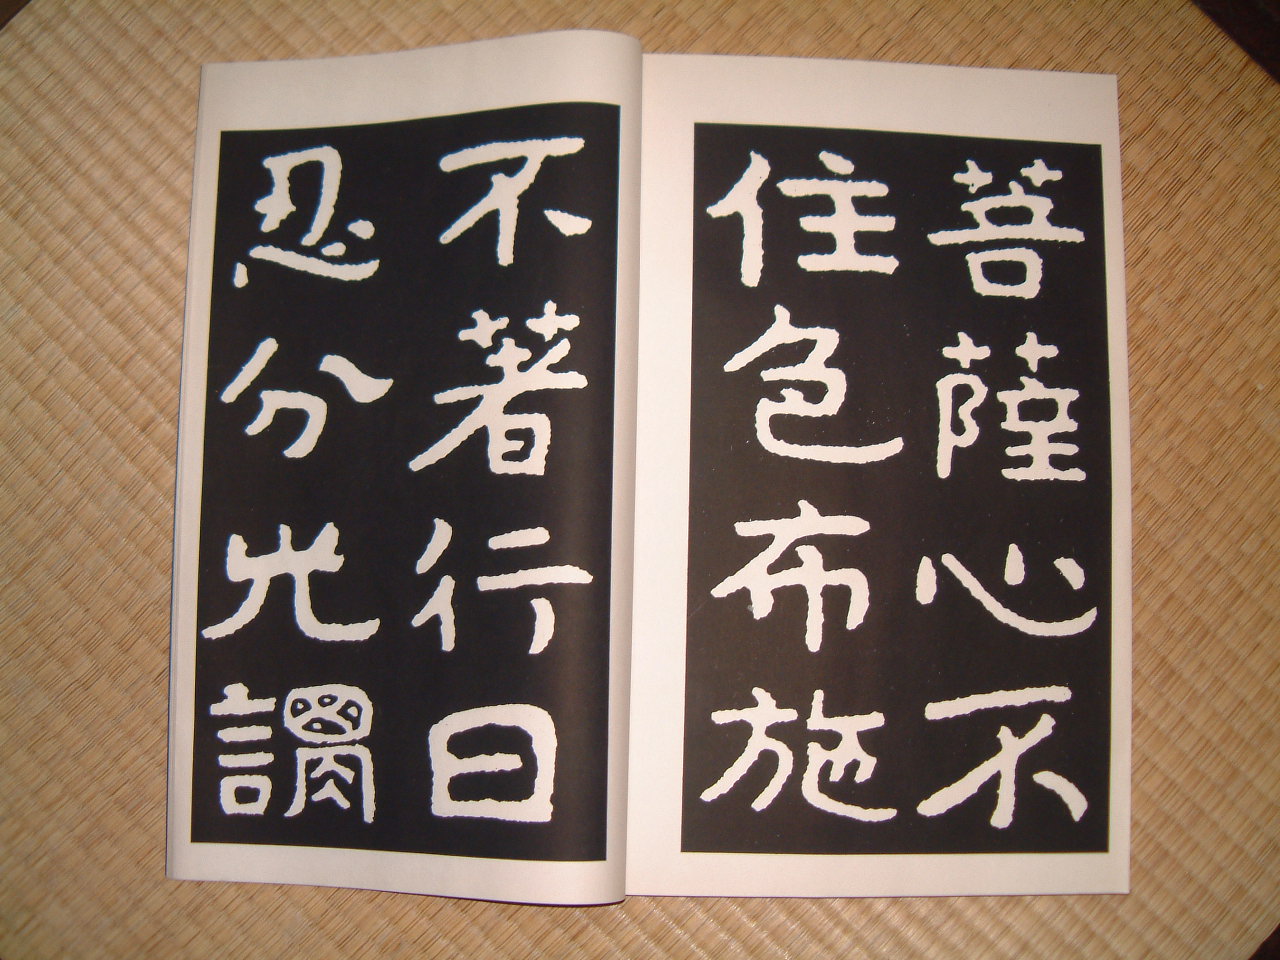 菩薩心不
住色布施
不著行曰
忍分光謂